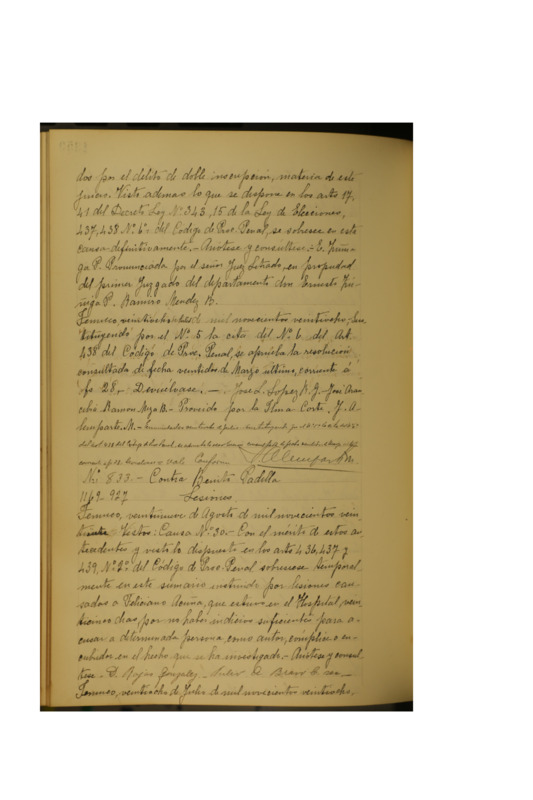 dos por el delito de doble inscripción, materia de este
juicio. Visto ademas lo que se dispone en los arts 17,
41 del Decreto Ley Nº 343, 15 de la Ley de Elecciones,
437, 438 Nº 6º del Codigo de Proc. Penal, se sobresee en esta
causa definitivamente.- Anótese y consúltese.- E. Zuñi-
ga P. Pronunciada por el señor Juez Letrado, en propiedad
del primer Juzgado del departamento don Ernesto Zú-
ñiga P. Ramiro Mendez B.
Temuco, de mil novecientos veintiocho. Sus-
tituyendo por el Nº 5 la cita del Nº 6 del Art.
438 del Código de Proc. Penal, se aprueba la resolución
consultada de fecha veintidos de Marzo último, corriente á
fs 28.- Devuélvase. José L. Lopez José
Ramon B.- Proveido por la Iltma Corte,
M.-
vale Conforme
Nº 833.- Contra Benito Padilla
1169-927 Lesiones
Temuco, veintinueve de Agosto de mil novecientos vein
Vistos: Causa Nº 30.- Con el mérito de estos an-
tecedentes y visto lo dispuesto en los arts 436, 437 y
439, Nº 2º del Código de Proc. Penal sobreséese temporal
mente en este sumario instruido por lesiones cau-
sadas a Feliciano Acuña, que estuvo en el Hospital, vein
dias, por no haber indicios suficientes para a-
cusar a determinada persona como autor, cómplice o en-
cubridor en el hecho que se ha investigado.- Anótese y consúl
tese.- D. Rojas Gonzalez.- Bravo
Temuco, veintiocho de Julio de mil novecientos veintiocho.